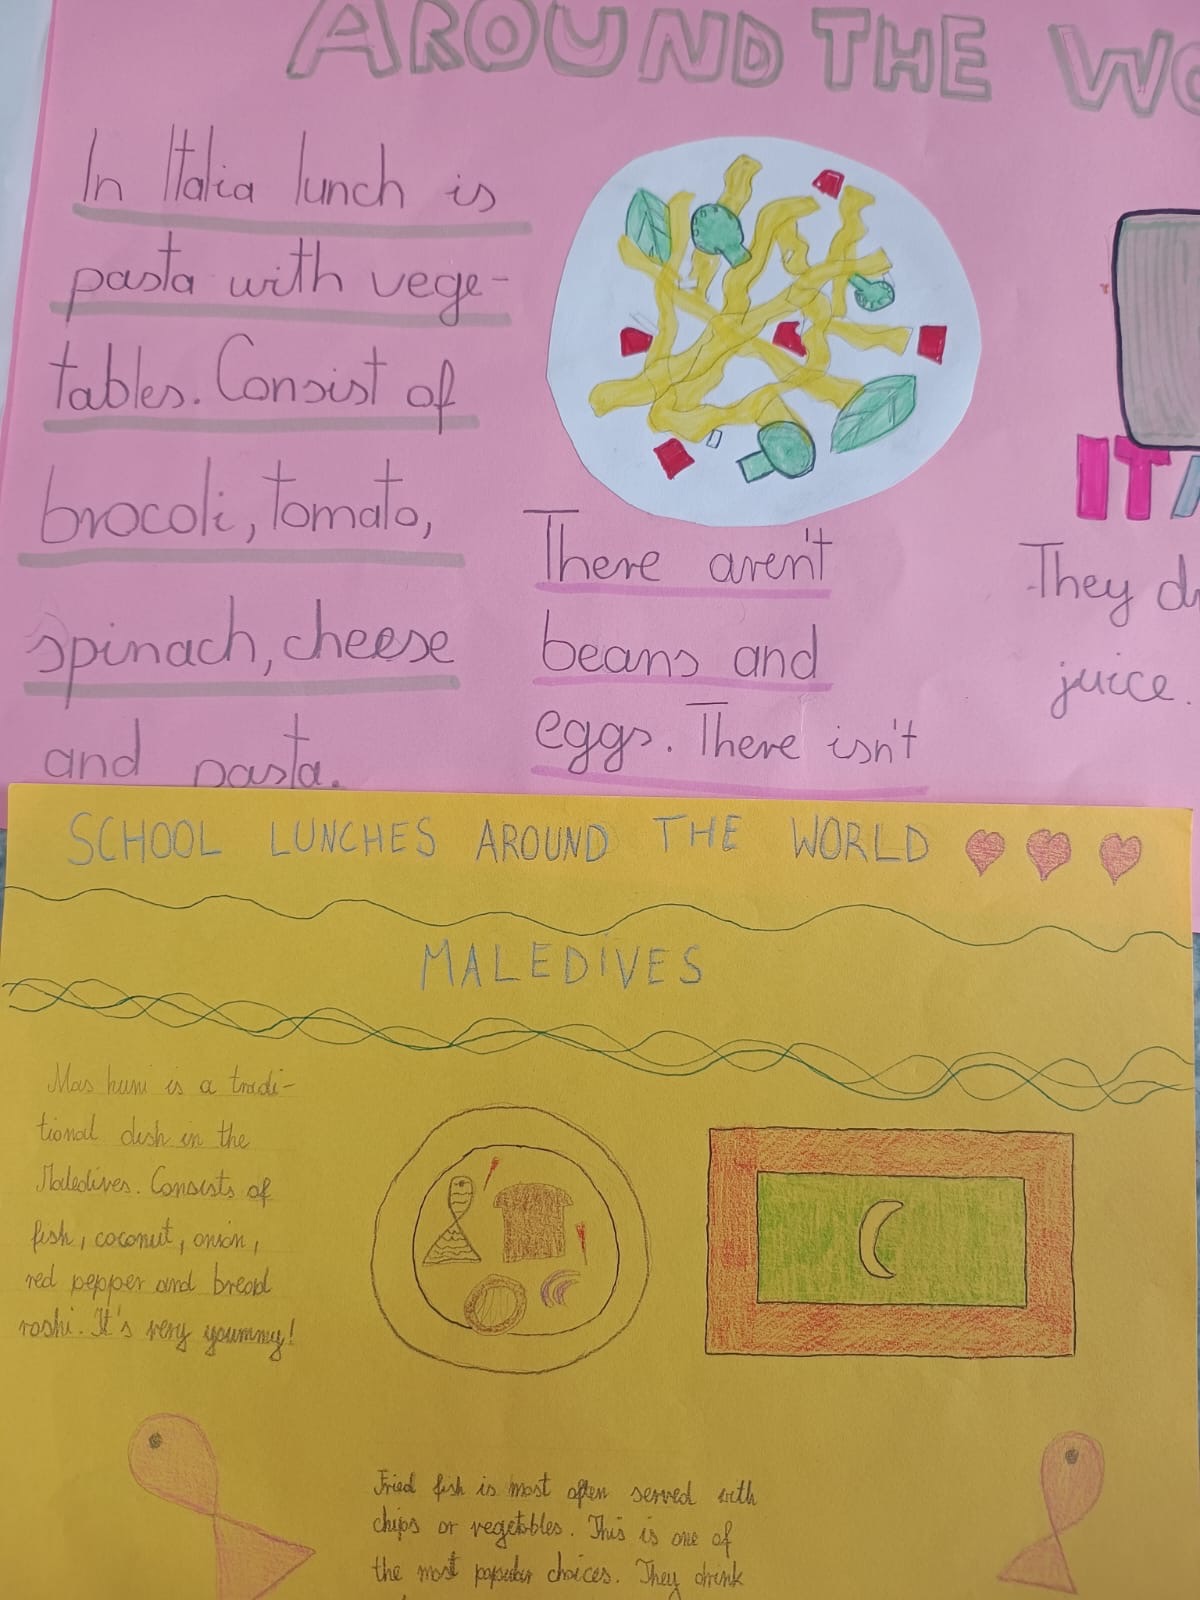 AROUND THE WO
In Italia lunch is
pasta with vege-
tables. Consist of
brocoli, tomato,
spinach, cheese
and pasta.
There aren't
beans and
eggs. There isn't
ITA
They dr
juice.
SCHOOL LUNCHES AROUND THE WORLD
MALEDIVES
Mas huni is a tradi-
tional dish in the
Maledives. Consists of
fish, coconut, onion,
red pepper and bread
roshi. It's very yoummy!
Fried fish is most often served with
chips or vegetables. This is one of
the most popular choices. They drink